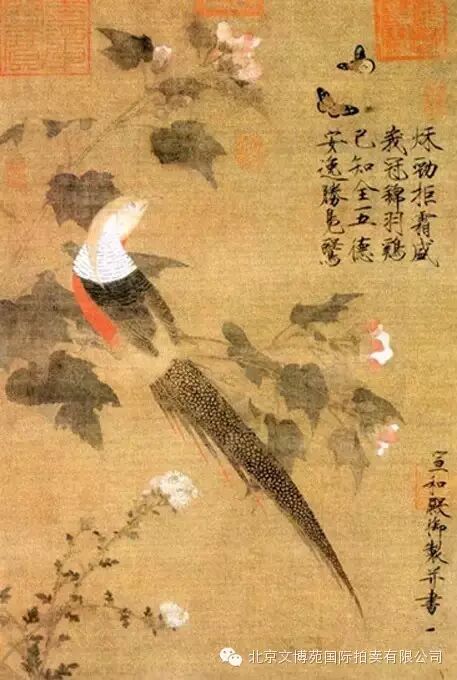 秋勁拒霜盛
峩冠錦羽鷄
已知全五德
安逸勝鳧鷖
宣和殿御製并書
北京文博苑国际拍卖有限公司